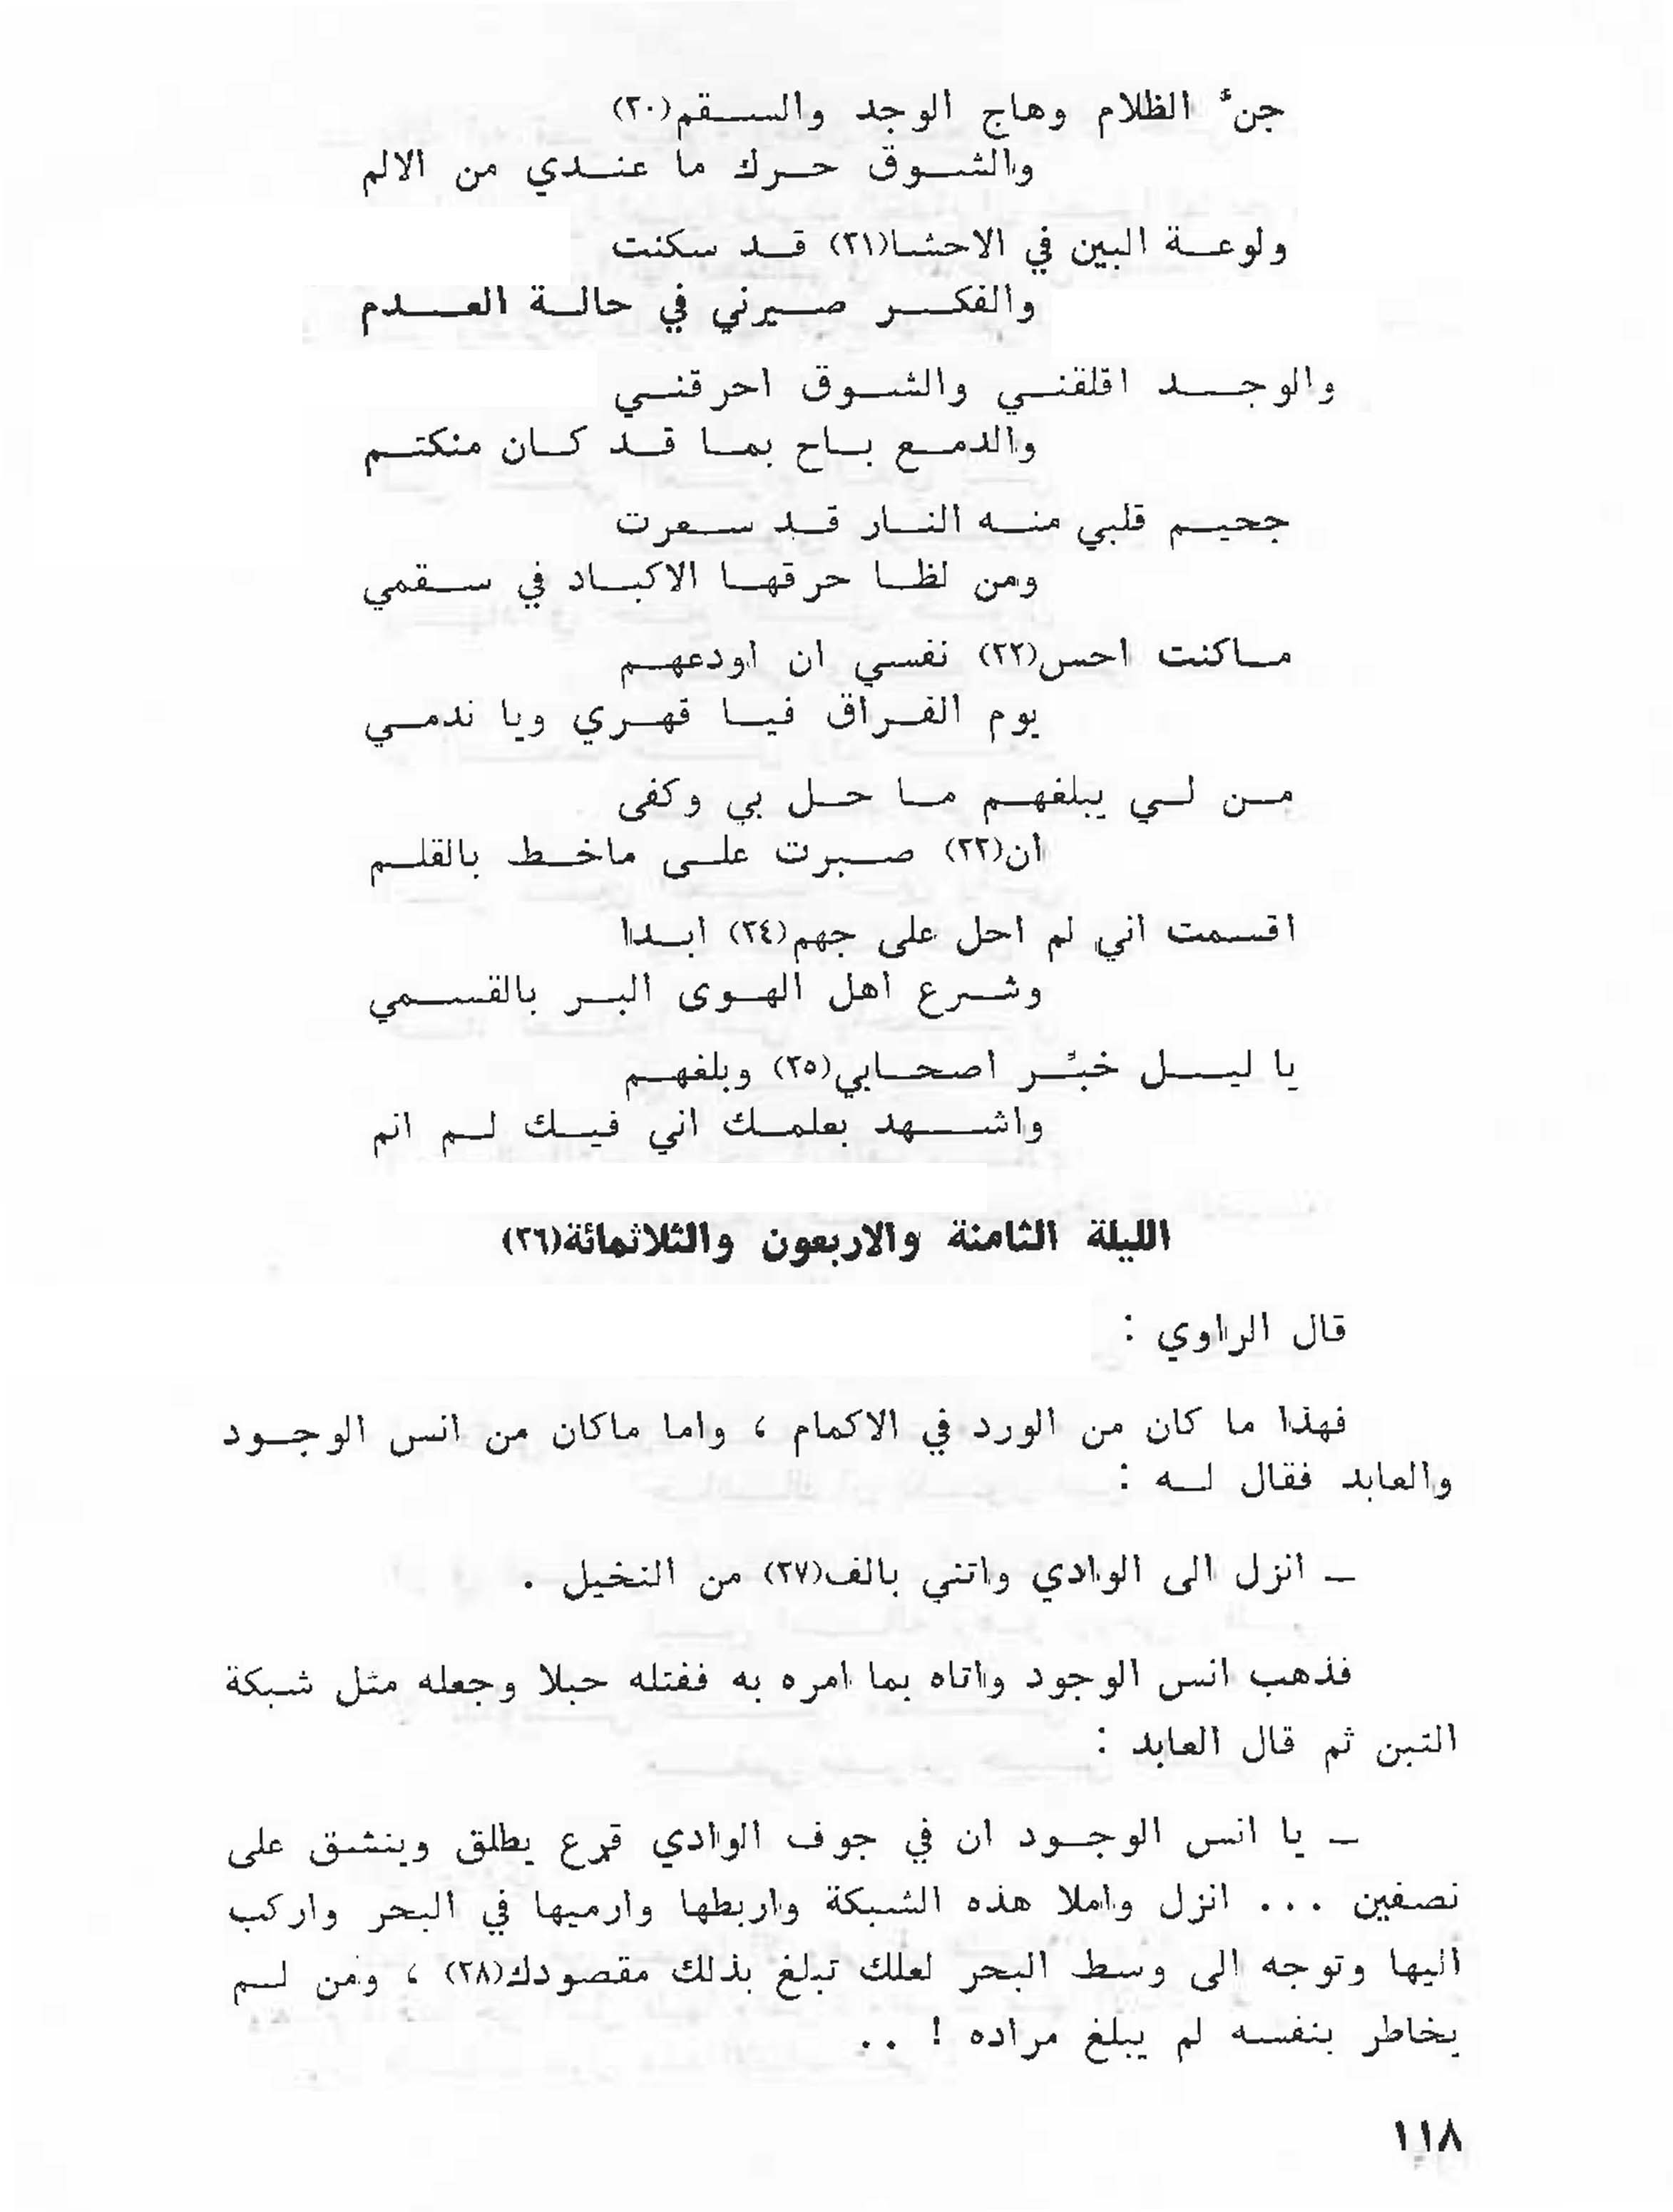 جنّ الظلام وهاج الوجد والسقم(٢٠)
والشوق حرك ما عندي من الالم
ولوعة البين في الاحشا(٢١) قد سكنت
والفكر صيرني في حالة العدم
والوجد اقلقني والشوق احرقني
والدمع باح بما قد كان منكتم
جحيم قلبي منه النار قد سعرت
ومن لظا حرقها الاكباد في سقمي
ماكنت احس(٢٢) نفسي ان اودعهم
يوم الفراق فيا قهري ويا ندمي
من لي يبلغهم ما حل بي وكفى
ان(٢٣) صبرت على ماخط بالقلم
اقسمت اني لم احل على جهم(٢٤) ابدا
وشرع اهل الهوى البر بالقسمي
يا ليل خبّر اصحابي(٢٥) وبلغهم
واشهد بعلمك اني فيك لم انم
الليلة الثامنة والاربعون والثلاثمائة(٢٦)
قال الراوي :
فهذا ما كان من الورد في الاكمام ، واما ماكان من انس الوجود
والعابد فقال له :
ـ انزل الى الوادي واتني بالف(٢٧) من النخيل .
فذهب انس الوجود واتاه بما امره به ففتله حبلا وجعله مثل شبكة
التبن ثم قال العابد :
ـ يا انس الوجود ان في جوف الوادي قرع يطلق وينشق على
نصفين ... انزل واملا هذه الشبكة واربطها وارميها في البحر واركب
اليها وتوجه الى وسط البحر لعلك تبلغ بذلك مقصودك(٢٨) ، ومن لم
يخاطر بنفسه لم يبلغ مراده ! ..
١١٨